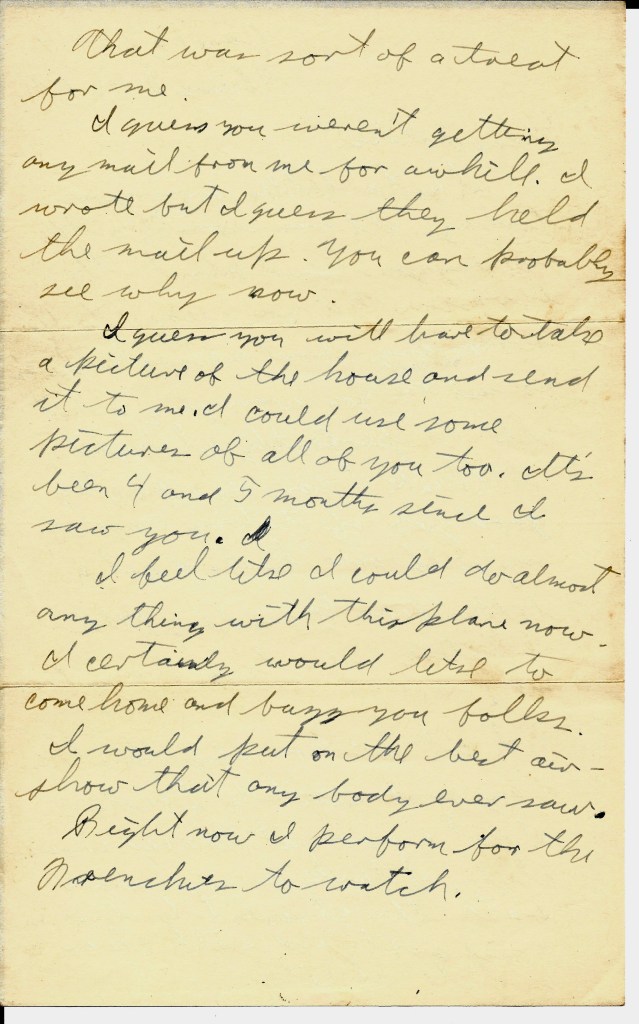 That was sort of a treat
for me.
I guess you weren't getting
any mail from me for awhile. I
wrote but I guess they held
the mail up. You can probably
see why now.
I guess you will have to take
a picture of the house and send
it to me. I could use some
pictures of all of you too. It's
been 4 and 5 months since I
saw you. I
I feel like I could do almost
any thing with this plane now.
I certainly would like to
come home and buzz you folks.
I would put on the best air-
show that any body ever saw.
Right now I perform for the
Frenchies to watch.